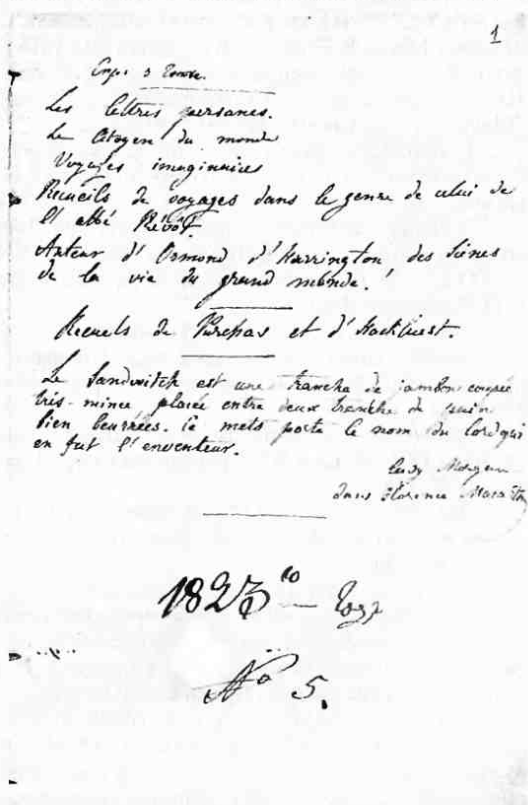 1
Les lettres persanes.
Le Citoyen du monde
Voyages imaginaires
Recueils de voyages dans le genre de celui de
l'abbé Prévôt
Auteur d'Ormond d'Harrington des scènes
de la vie du grand monde.
Recuels de Purchas et d'Hackluest.
Le Sandwitch est une tranche de jambon coupée
très-mince placée entre deux tranche de
bien beurrées. Ce mets porte le nom du lord qui
en fut l'enventeur.
Lady Morgan
dans Florence
182
No 5.